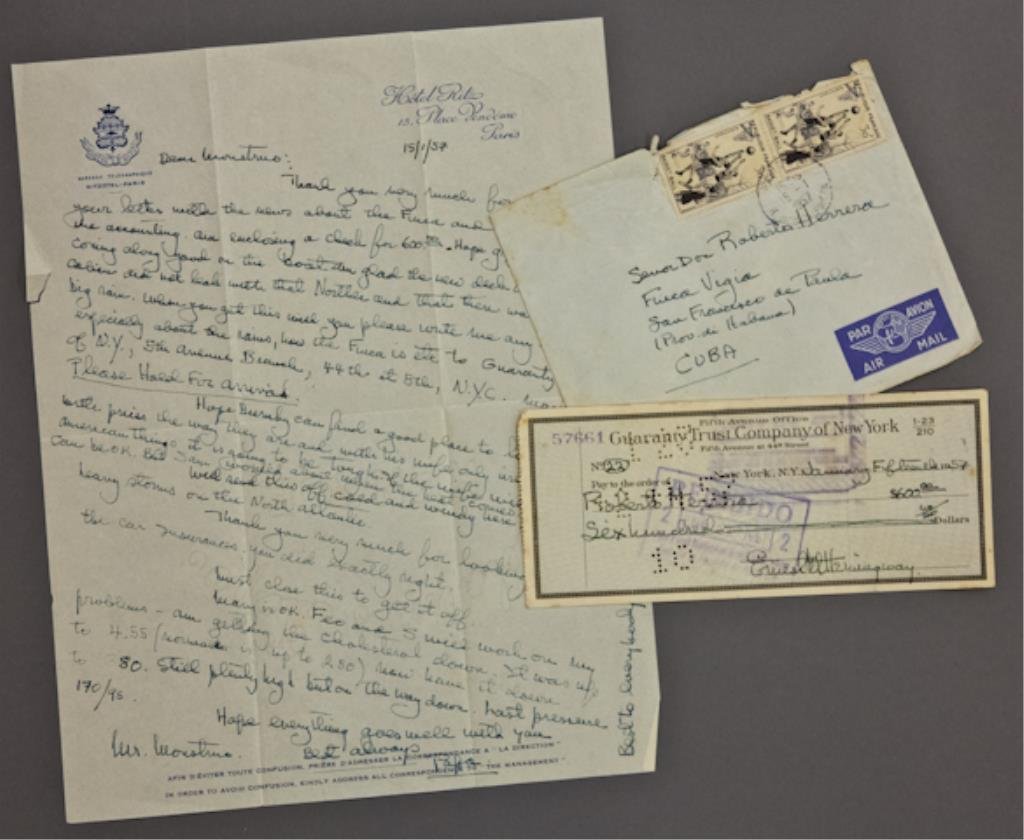 Hôtel Ritz
15, Place Vendôme
Paris
15/1/57
Dear Monstruo:
Thank you very much for
your letter with the news about the Finca and
the accounting. Am enclosing a check for 600.00. Hope
coming along good on the boat. Am glad the new
did not leak with that Norther and that there was
big rain. When you get this will you please write me any
especially about the rains, how the Finca is etc to Guaranty
of N.Y., 5th Avenue Branch, 44th at 5th, N.Y.C.
Please Hold For Arrival.
Hope can find a good place to
the way they are and with his only
american things it is going to be tough
can be OK. But I am about
Will send this off. Cold and windy here
heavy storms on the North Atlantic
Thank you very much for looking
the car insurance, you did exactly right.
Must close this to get it off.
Mary is OK. Feo and S. work on my
problems - am getting the cholesterol down. It was up
to 4.55 (normal is up to 2.80) now have it down
to 380. Still plenty high but on the way down. Last pressure
170/95.
Hope everything goes well with you
Best always
Mr. Monstruo.
Best to everybody
AFIN D'ÉVITER TOUTE CONFUSION, PRIÈRE D'ADRESSER LA CORRESPONDANCE A "LA DIRECTION"
IN ORDER TO AVOID CONFUSION, KINDLY ADDRESS ALL CORRESPONDENCE TO "THE MANAGEMENT"
Senor Don Roberto Herrera
Finca Vigia
San Francisco de Paula
(Prov. di Habana)
CUBA
PAR AVION
AIR MAIL
Fifth Avenue Office
57661 Guaranty Trust Company of New York 1-23
Fifth Avenue at 44th Street 210
No 22 New York, N.Y. January Fifteenth 1957
Pay to the order of
Roberto Herrera $600.00
Six hundred Dollars
10
Ernest Hemingway